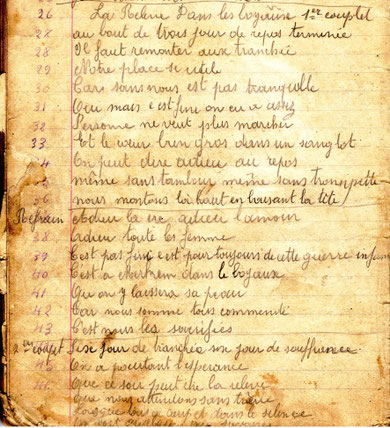 26 La Relève Dans les boyeuse 1er couplet
27 au bout de trois jour de repos terminée
28 Il faut remonter aux tranchée
29 Notre place si utile
30 Car sans nous est pas tranquille
31 Oui mais c'est fini on en a asez
32 Personne ne veut plus marcher
33 Et le cœur bien gros dans un sanglot
34 On peut dire adieu au repos
35 même sans tambour même sans tronpette
36 nous montons là haut en baisant la tête
Refrain Adieu la vie adieu l'amour
38 Adieu toute les femme
39 C'est pas fini c'est pour toujours de cette guerre infame
40 C'est a dans le boyaux
41 Que on y laissera sa peau
42 Car nous somme tous commendé
43 C'est nous les sacrifiés
2eme couplet Sise jour de tranchée sise jour de souffrance
45 On a pourtant l'esperance
46 Que ce soir peut être la relève
Que nous attendons sans trêve
dans le silence